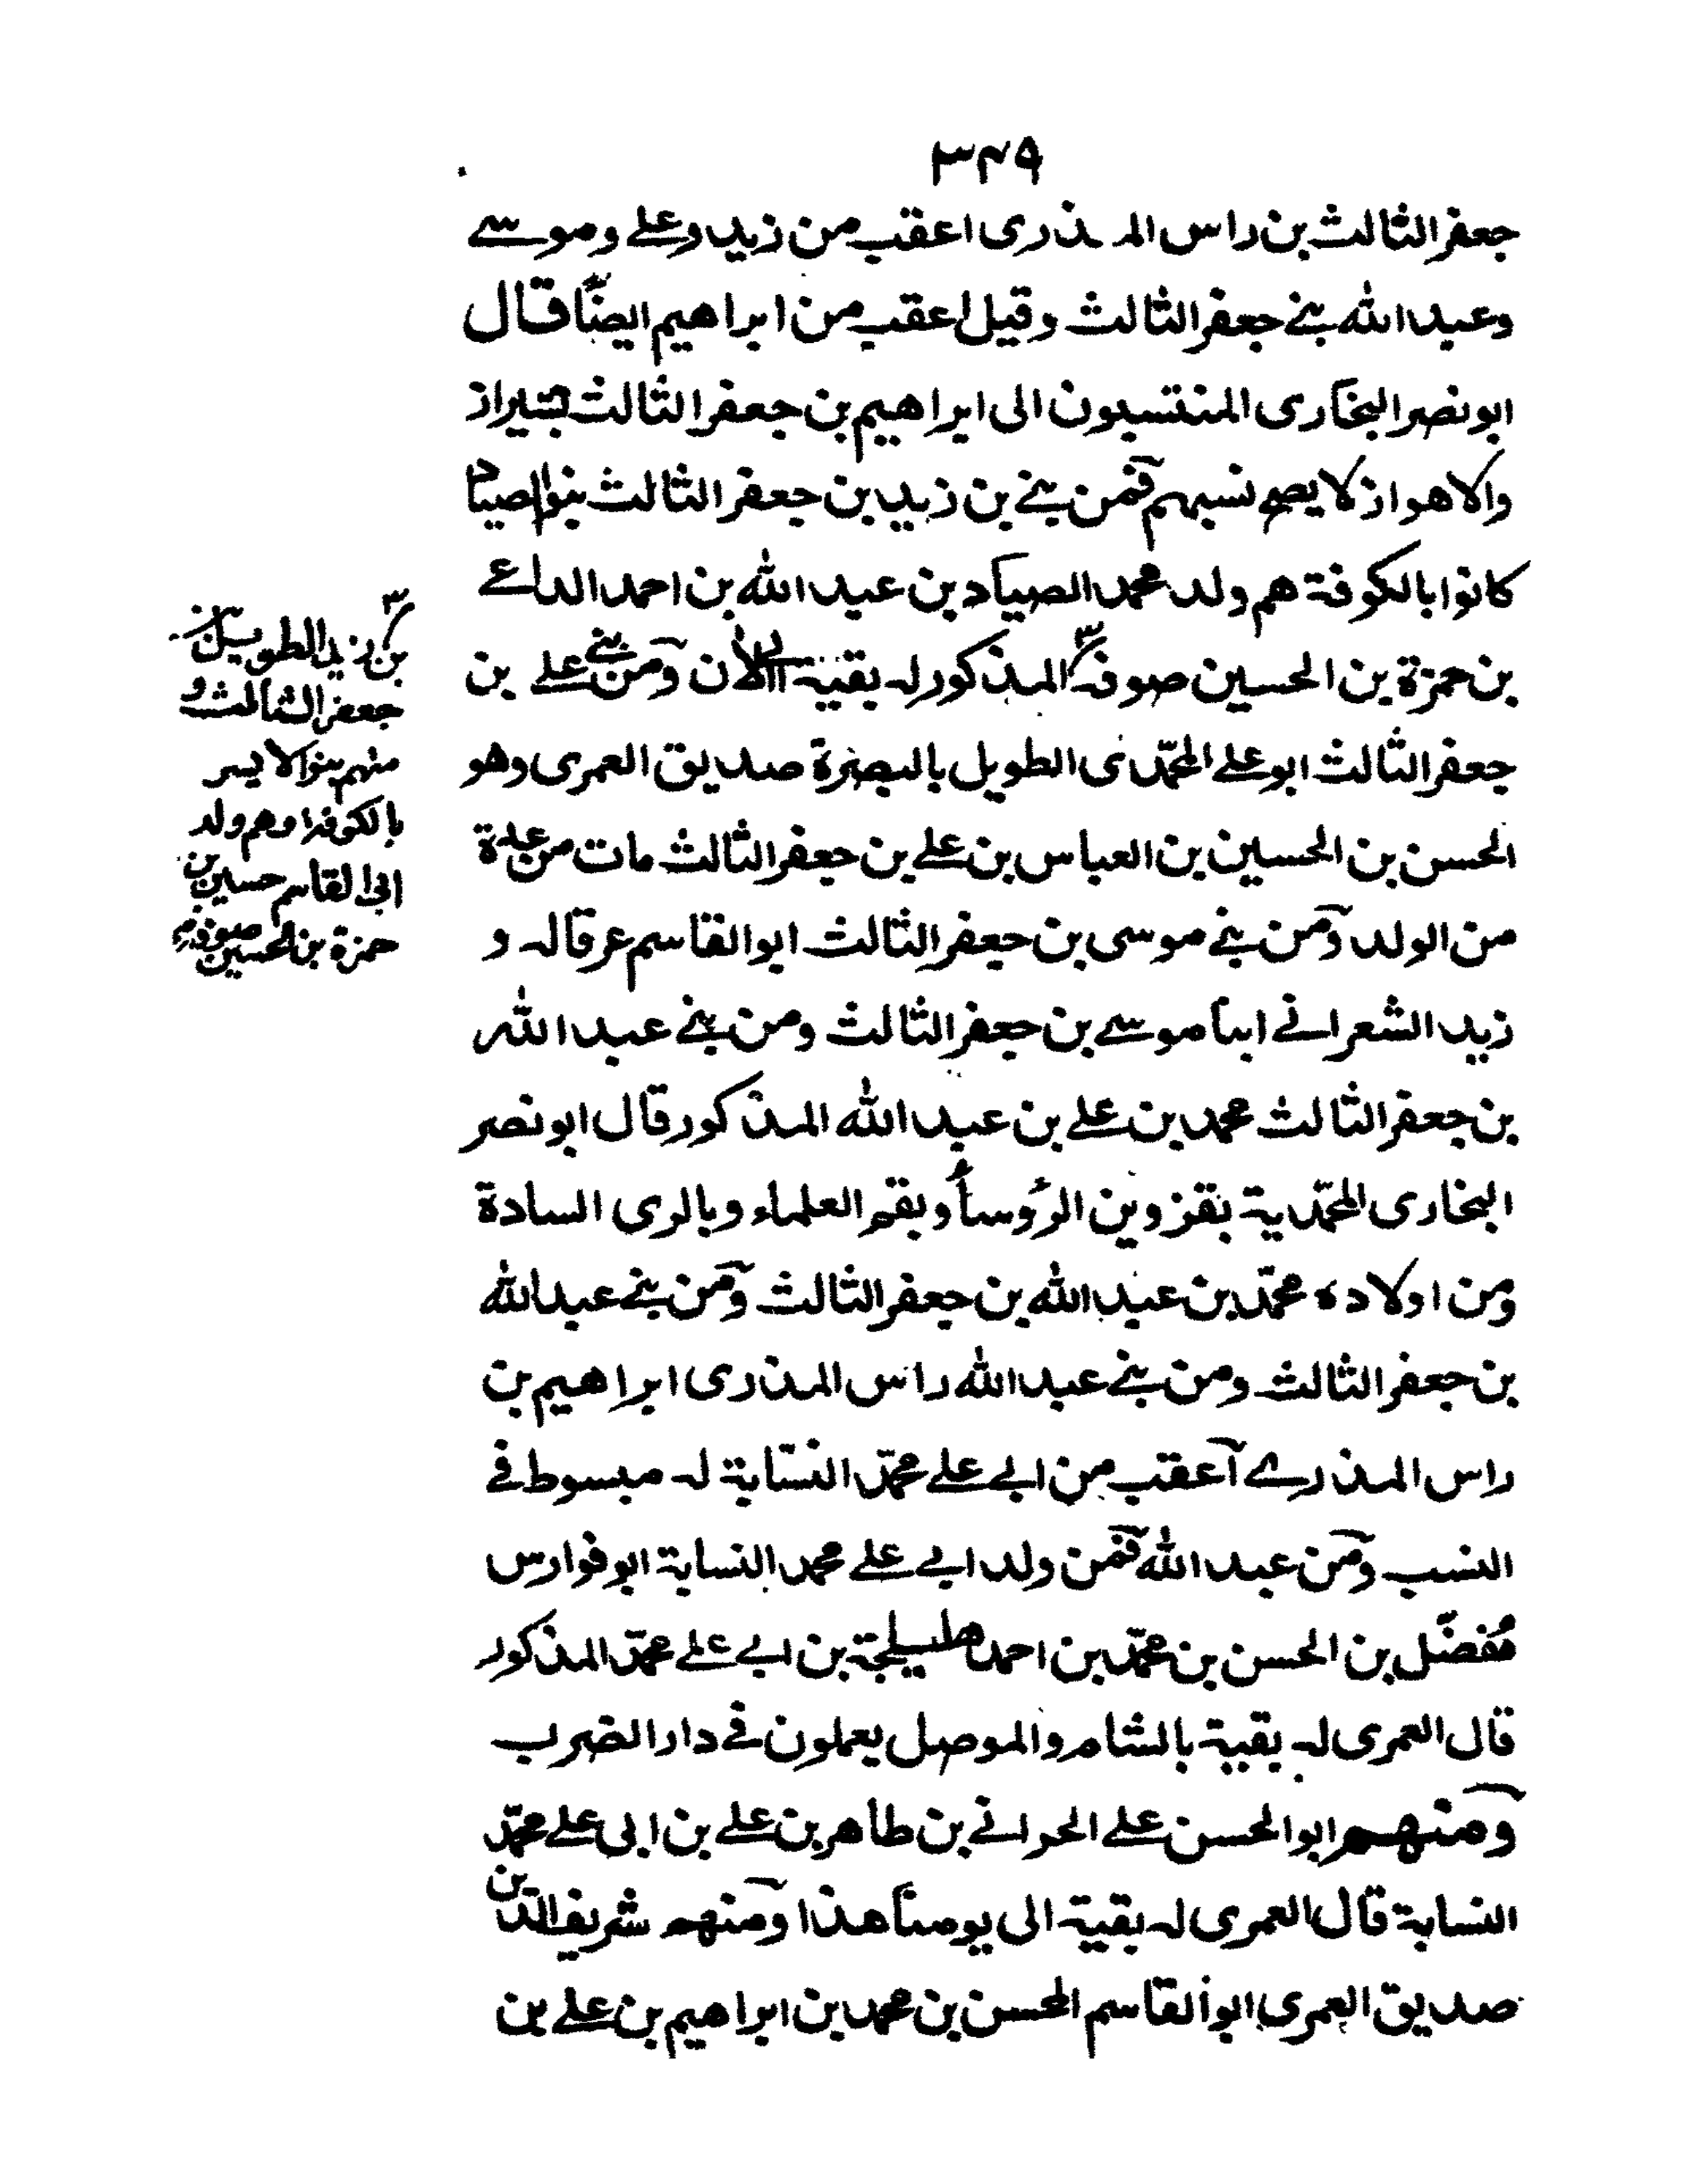 ٣٤٩
جعفر الثالث بن راس المذرى اعقب من زيد وعلى وموسے
وعبد الله بنے جعفر الثالث وقيل اعقب من ابراهيم ايضًا قال
ابو نصر البخارى المنتسبون الى ابراهيم بن جعفر الثالث بشيراز
والاهواز لا يصح نسبهم فمن بنے بن زيد بن جعفر الثالث بنو الصياد
كانوا بالكوفة هم ولد محمد الصياد بن عبد الله بن احمد الداعے
بن حمزة بن الحسين صوفة المذكور له بقية الى الآن ومن بنے علے بن
جعفر الثالث ابو علے المحمّدى الطويل بالبصرة صديق العمرى وهو
الحسن بن الحسين بن العباس بن علے بن جعفر الثالث مات من عدة
من الولد ومن بنے موسى بن جعفر الثالث ابو القاسم عرقاله و
زيد الشعرانے ابنا موسے بن جعفر الثالث ومن بنے عبد الله
بن جعفر الثالث محمد بن علے بن عبد الله المذكور قال ابو نصر
البخارى المحمّدية بقزوين الرؤسأ وبقم العلماء وبالرى السادة
ومن اولاده محمّد بن عبد الله بن جعفر الثالث ومن بنے عبد الله
بن جعفر الثالث ومن بنے عبد الله راس المذرى ابراهيم بن
راس المذرے اعقب من ابے علے محمّد النسّابة له مبسوط فے
النسب ومن عبد الله فمن ولد ابے علے محمد النسابة ابو فوارس
مُفضّل بن الحسن بن محمّد بن احمد هليلجة بن ابے علے محمّد المذكور
قال العمرى له بقية بالشام والموصل يعملون فے دار الضرب
ومنهم ابو الحسن علے الحرانے بن طاهر بن علے بن ابى علے محمّد
النسابة قال العمرى له بقية الى يومنا هذا ومنهم شريف الدين
صديق العمرى ابو القاسم المحسن بن محمد بن ابراهيم بن علے بن
بن زيد الطويل بن
جعفر الثالث و
منهم بنو الايسر
بالكوفة وهم ولد
ابى القاسم حسين بن
حمزة بن الحسين صوفة